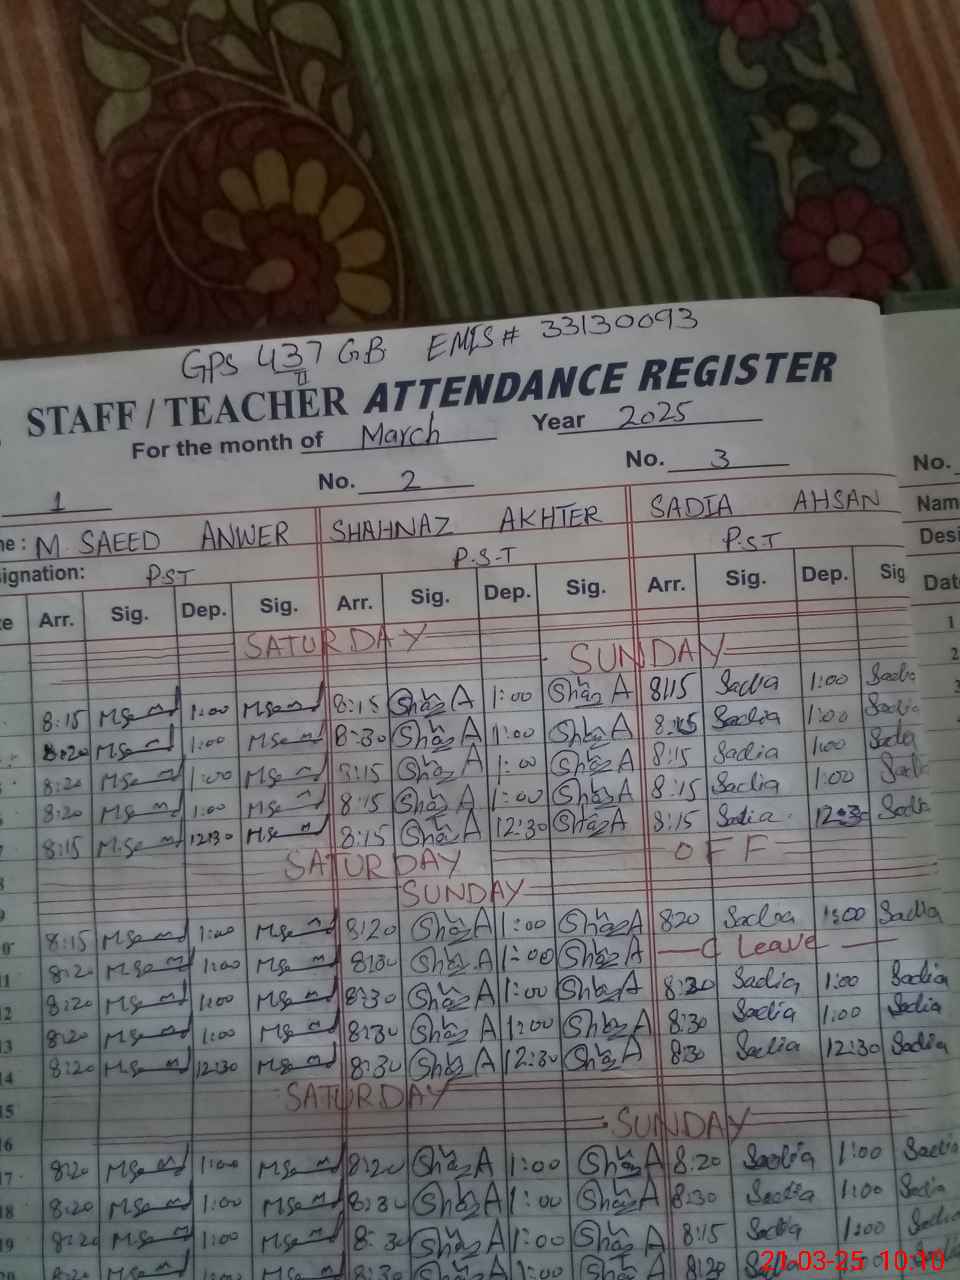 GPS 437 GB EMIS# 33130093
II
STAFF / TEACHER ATTENDANCE REGISTER
For the month of March Year 2025
1 No. 2 No. 3 No.
me: M SAEED ANWER SHAHNAZ AKHTER SADIA AHSAN Nam
signation: PST P.S.T P.S.T Desi
te Arr. Sig. Dep. Sig. Arr. Sig. Dep. Sig. Arr. Sig. Dep. Sig Date
SATURDAY 1
SUNDAY 2
8:15 1:00 8:15 Shaz A 1:00 Shaz A 8:15 Sadia 1:00 Sadia 3
8:20 1:00 8:30 Shaz A 1:00 Shaz A 8:15 Sadia 1:00 Sadia
8:20 1:00 8:15 Shaz A 1:00 Shaz A 8:15 Sadia 1:00 Sadia
8:20 1:00 8:15 Shaz A 1:00 Shaz A 8:15 Sadia 1:00 Sadi
7 8:15 12:30 8:15 Shaz A 12:30 Shaz A 8:15 Sadia 12:30 Sadi
8 SATURDAY OFF
9 SUNDAY
10 8:15 1:00 8:20 Shaz A 1:00 Shaz A 8:20 Sadia 1:00 Sadia
11 8:20 1:00 8:30 Shaz A 1:00 Shaz A C Leave
12 8:20 1:00 8:30 Shaz A 1:00 Shaz A 8:30 Sadia 1:00 Sadia
13 8:20 1:00 8:30 Shaz A 1:00 Shaz A 8:30 Sadia 1:00 Sadia
14 8:20 12:30 8:30 Shaz A 12:30 Shaz A 8:30 Sadia 12:30 Sadia
15 SATURDAY
16 SUNDAY
17 8:20 1:00 8:20 Shaz A 1:00 Shaz A 8:20 Sadia 1:00 Sadia
18 8:20 1:00 8:30 Shaz A 1:00 Shaz A 8:30 Sadia 1:00 Sadia
19 8:20 1:00 8:30 Shaz A 1:00 Shaz A 8:15 Sadia 1:00 Sadia
20 8:20 1:00 8:30 Shaz A 1:00 8:20 Sadia
21-03-25 10:10